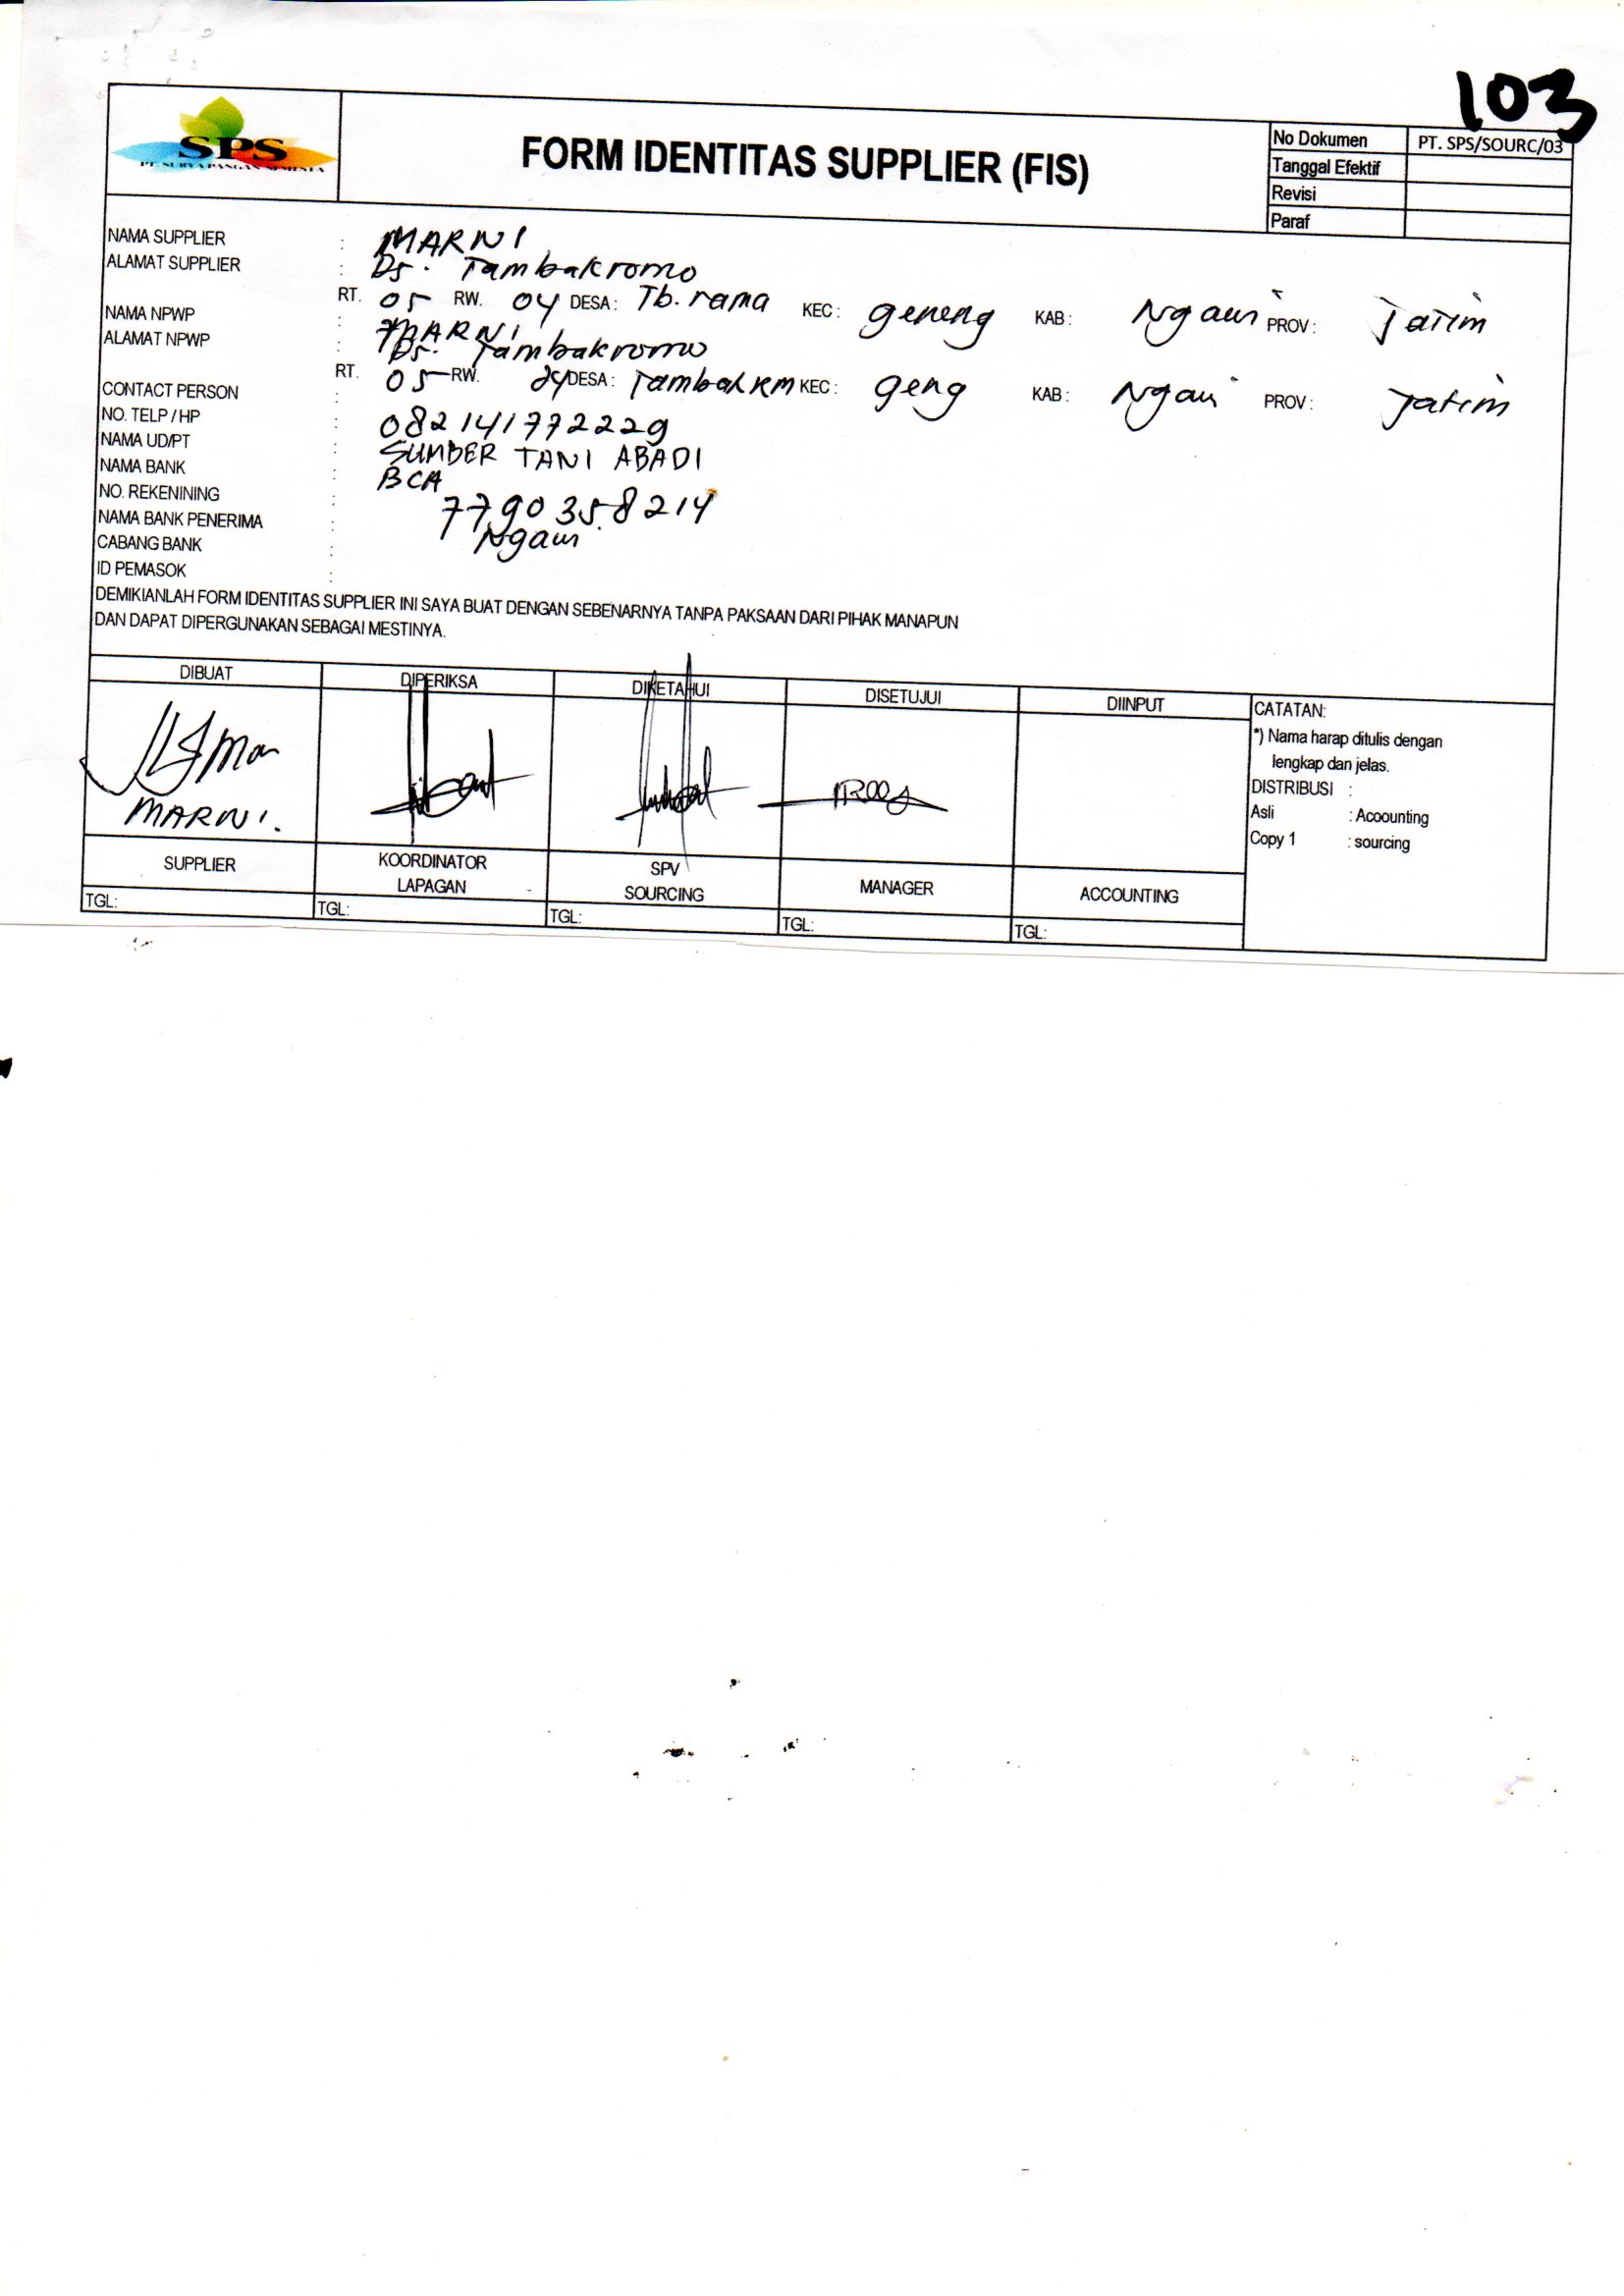 103
SPS
PT. SURYA PANGAN SEMESTA
FORM IDENTITAS SUPPLIER (FIS)
No Dokumen PT. SPS/SOURC/03
Tanggal Efektif
Revisi
Paraf
NAMA SUPPLIER : MARNI
ALAMAT SUPPLIER : Ds. Tambakromo
RT. 05 RW. 04 DESA : Tb. rama KEC : geneng KAB : Ngawi PROV : Jatim
NAMA NPWP : MARNI
ALAMAT NPWP : Ds. Tambakromo
RT. 05 RW. 04 DESA : Tambakrm KEC : geng KAB : Ngawi PROV : Jatim
CONTACT PERSON :
NO. TELP / HP : 082141772229
NAMA UD/PT : SUMBER TANI ABADI
NAMA BANK : BCA
NO. REKENINING : 7790358214
NAMA BANK PENERIMA : Ngawi
CABANG BANK :
ID PEMASOK :
DEMIKIANLAH FORM IDENTITAS SUPPLIER INI SAYA BUAT DENGAN SEBENARNYA TANPA PAKSAAN DARI PIHAK MANAPUN
DAN DAPAT DIPERGUNAKAN SEBAGAI MESTINYA.
DIBUAT DIPERIKSA DIKETAHUI DISETUJUI DIINPUT
MARNI.
SUPPLIER KOORDINATOR LAPAGAN SPV SOURCING MANAGER ACCOUNTING
TGL: TGL: TGL: TGL: TGL:
CATATAN:
*) Nama harap ditulis dengan
lengkap dan jelas.
DISTRIBUSI :
Asli : Acoounting
Copy 1 : sourcing